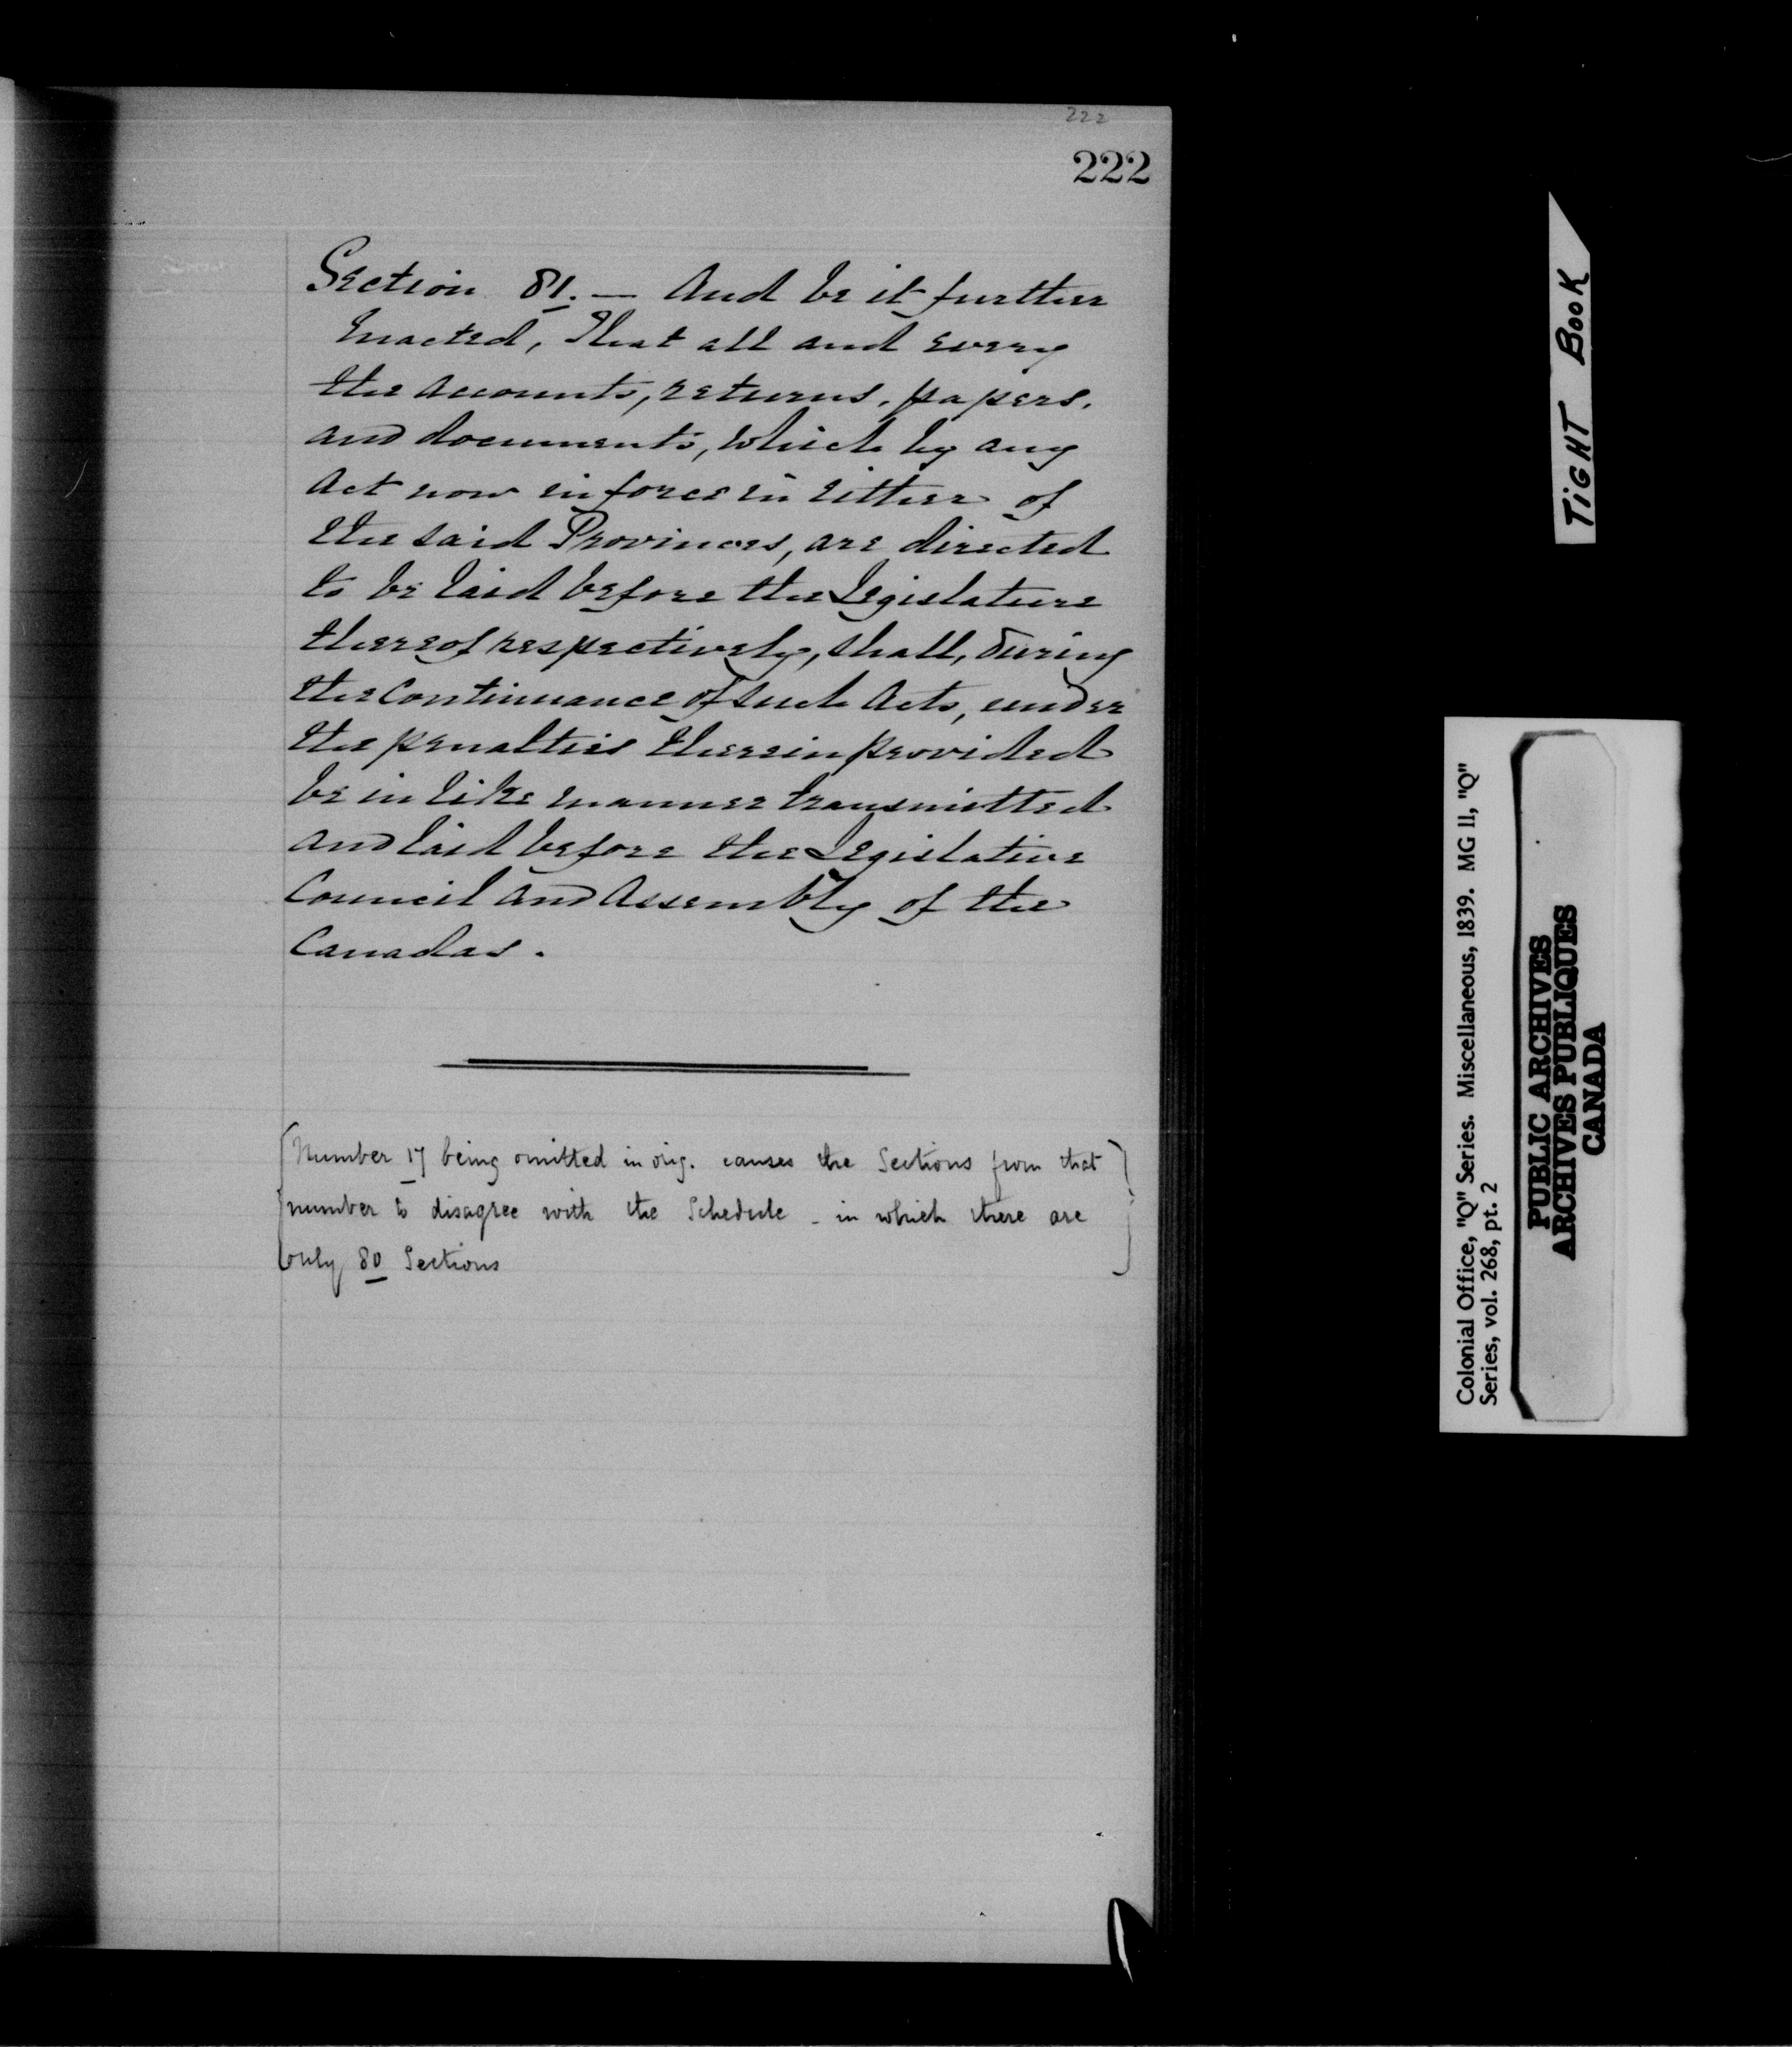 222
222
Section 81. — And be it further
Enacted, That all and every
the Accounts, returns, papers,
and documents, which by any
Act now in force in either of
the said Provinces, are directed
to be laid before the Legislature
thereof respectively, shall, during
the Continuance of such Acts, under
the penalties therein provided
be in like manner transmitted
and laid before the Legislative
Council and Assembly of the
Canadas.
[Number 17 being omitted in orig. causes the Sections from that
number to disagree with the Schedule - in which there are
only 80 Sections]
TIGHT BOOK
Colonial Office, "Q" Series. Miscellaneous, 1839. MG 11, "Q"
Series, vol. 268, pt. 2
PUBLIC ARCHIVES
ARCHIVES PUBLIQUES
CANADA